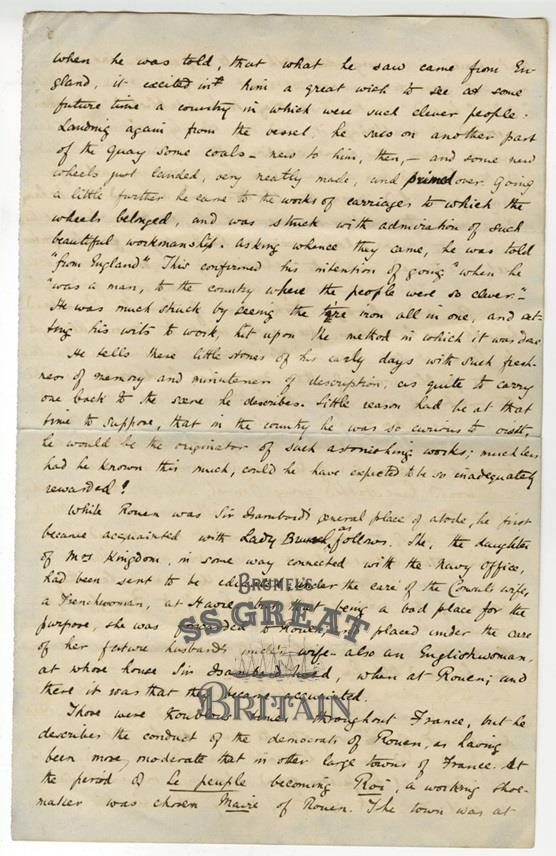 when he was told, that what he saw came from En-
gland, it excited in him a great wish to see at some
future time a country in which were such clever people.
Landing again from the vessel, he sees on another part
of the quay some coals – new to him, then, – and some new
wheels just landed, very neatly made, and primed over. Going
a little further he came to the works of carriages to which the
wheels belonged, and was struck with admiration of such
beautiful workmanship. Asking whence they came, he was told
"from England". This confirmed his intention of going "when he
"was a man, to the country where the people were so clever."
He was much struck by seeing the tire iron all in one, and set-
ting his wits to work, hit upon the method in which it was done
He tells these little stories of his early days with such fresh-
ness of memory and minuteness of description, as quite to carry
one back to the scene he describes. Little reason had he at that
time to suppose, that in the country he was so curious to visit,
he would be the originator of such astonishing works; much less
had he known this much, could he have expected to be so inadequately
rewarded!
While Rouen was Sir Isambard's general place of abode, he first
became acquainted with Lady Brunel, as follows. She, the daughter
of Mrs Kingdom, in some way connected with the Navy Office,
had been sent to be under the care of the Consul's wife,
a Frenchwoman, at Havre being a bad place for the
purpose, she was forwarded to Rouen, placed under the care
of her future husband's wife – also an Englishwoman,
at whose house Sir Isambard, when at Rouen; and
there it was that they became acquainted.
There were times throughout France, but he
describes the conduct of the democrats of Rouen, as having
been more moderate that in other large towns of France. At
the period of le peuple becoming Roi, a working shoe-
maker was chosen Maire of Rouen. The town was at
BRUNEL'S
SS GREAT
BRITAIN